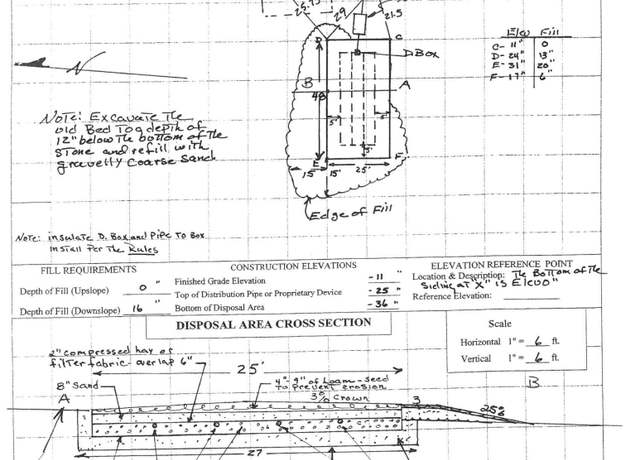 29
21.5
D
C
D Box
Elev Fill
C- 11" 0
D- 24" 13"
E- 31" 20"
F- 17" 6"
N
B
A
48
Note: Excavate The
old Bed To a depth of
12" below The bottom of the
Stone and refill with
gravelly Coarse Sand
5'
5'
5'
E
F
15'
15'
25'
Edge of Fill
Note: insulate D. Box and Pipe To Box
install Per The Rules
FILL REQUIREMENTS
Depth of Fill (Upslope) 0 "
Depth of Fill (Downslope) 16 "
CONSTRUCTION ELEVATIONS
Finished Grade Elevation -11 "
Top of Distribution Pipe or Proprietary Device -25 "
Bottom of Disposal Area -36 "
ELEVATION REFERENCE POINT
Location & Description: The Bottom of the
Siding at "X" is Elev 0"
Reference Elevation:
DISPOSAL AREA CROSS SECTION
Scale
Horizontal 1" = 6 ft.
Vertical 1" = 6 ft.
2" compressed hay or
filter fabric - overlap 6"
25'
8" Sand
4"-9" of Loam - seed
to prevent erosion
3% Crown
A
B
3
25%
27